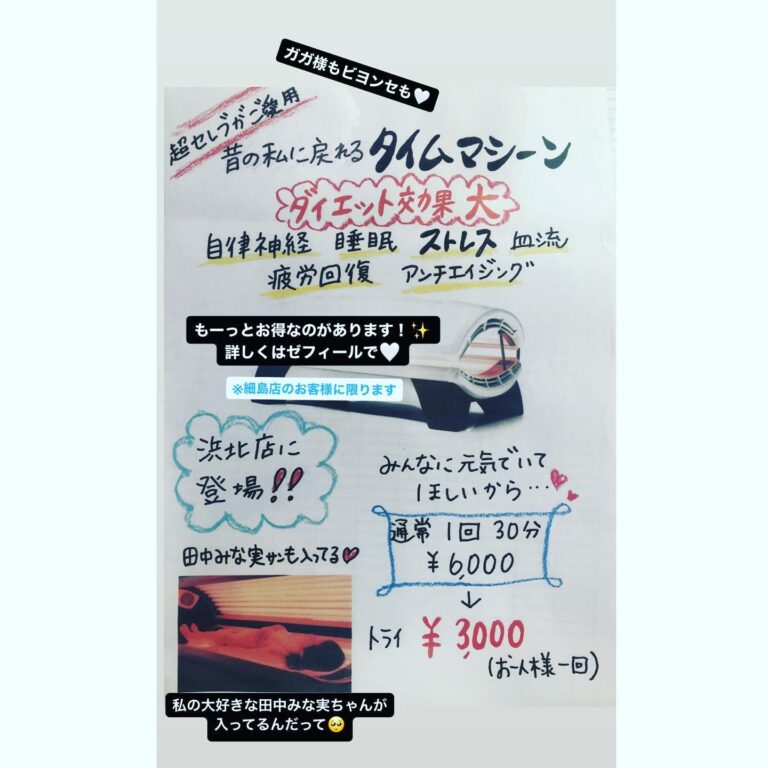 ガガ様もビヨンセも🤍
超セレブがご愛用
昔の私に戻れるタイムマシーン
ダイエット効果 大
自律神経 睡眠 ストレス 血流
疲労回復 アンチエイジング
もーっとお得なのがあります！✨
詳しくはゼフィールで🤍
※細島店のお客様に限ります
浜北店に
登場!!
みんなに元気でいて
ほしいから…
通常 1回 30分
¥6,000
↓
トライ ¥3,000
(お一人様一回)
田中みな実サンも入ってる♥
私の大好きな田中みな実ちゃんが
入ってるんだって🥺